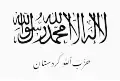 لا إله إلا الله محمد رسول الله
حزب الله كردستان